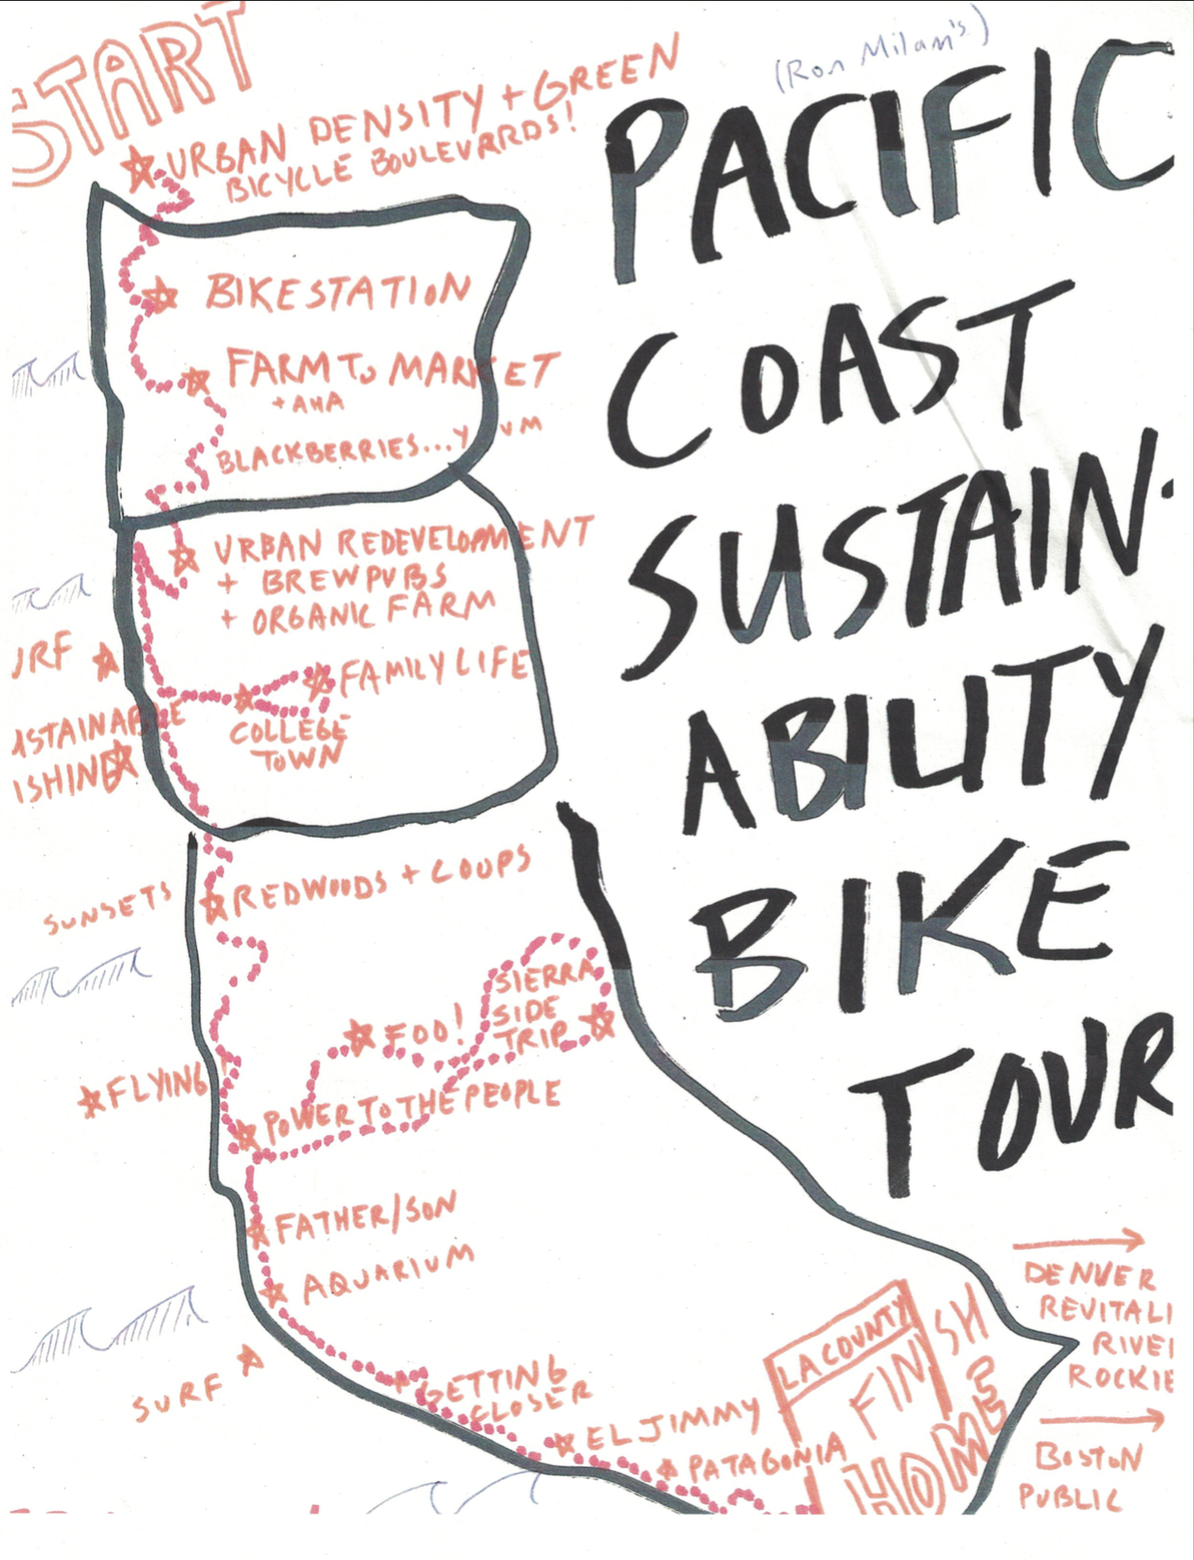 START
(Ron Milam's)
URBAN DENSITY + GREEN
BICYCLE BOULEVARDS!
PACIFIC
COAST
SUSTAIN-
ABILITY
BIKE
TOUR
BIKESTATION
FARM TO MARKET
+ AHA
BLACKBERRIES... YUM
URBAN REDEVELOPMENT
+ BREWPUBS
+ ORGANIC FARM
URF
FAMILY LIFE
COLLEGE
TOWN
USTAINABLE
ISHING
SUNSETS
REDWOODS + COUPS
SIERRA
SIDE
TRIP
FOO!
FLYING
POWER TO THE PEOPLE
FATHER/SON
AQUARIUM
SURF
GETTING
CLOSER
EL JIMMY
PATAGONIA
LA COUNTY
FINISH
HOME
DENVER
REVITALI
RIVE
ROCKIE
BOSTON
PUBLIC